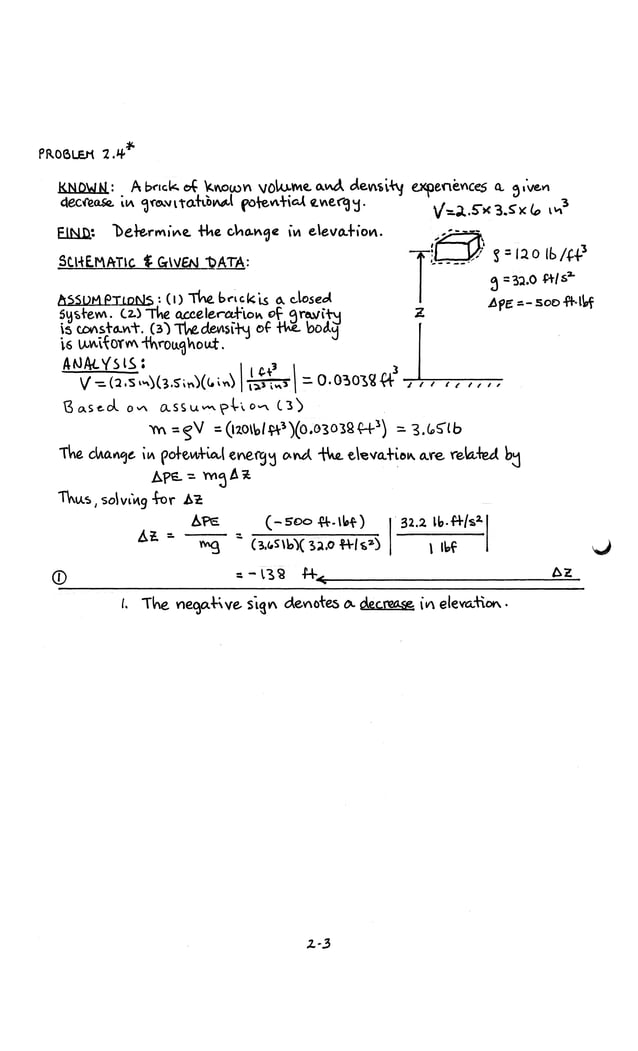 PROBLEM 2.4*
KNOWN: A brick of known volume and density experiences a given
decrease in gravitational potential energy.
V=2.5x3.5x6 in³
FIND: Determine the change in elevation.
SCHEMATIC & GIVEN DATA:
ρ = 120 lb/ft³
g = 32.0 ft/s²
ΔPE = -500 ft·lbf
z
ASSUMPTIONS: (1) The brick is a closed
system. (2) The acceleration of gravity
is constant. (3) The density of the body
is uniform throughout.
ANALYSIS:
V = (2.5in)(3.5in)(6in) | 1 ft³ / 12³ in³ | = 0.03038 ft³
Based on assumption (3)
m = ρV = (120 lb/ft³)(0.03038 ft³) = 3.65 lb
The change in potential energy and the elevation are related by
ΔPE = mgΔz
Thus, solving for Δz
Δz = ΔPE / mg = (-500 ft-lbf) / (3.65 lb)(32.0 ft/s²) | 32.2 lb·ft/s² / 1 lbf |
① = -138 ft Δz
1. The negative sign denotes a decrease in elevation.
2-3